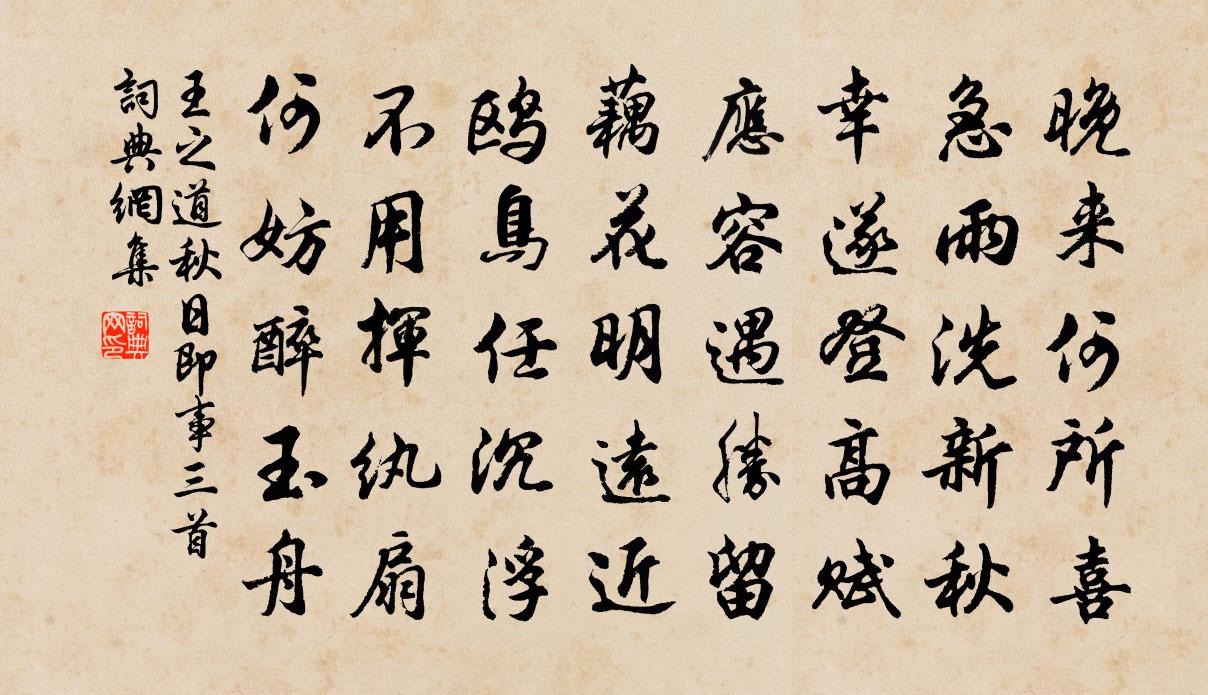 晚来何所喜
急雨洗新秋
幸遂登高赋
應容遇勝留
藕花明遠近
鸥鳥任沉浮
不用揮纨扇
何妨醉玉舟
王之道秋日即事三首
詞典網集
詞典网印